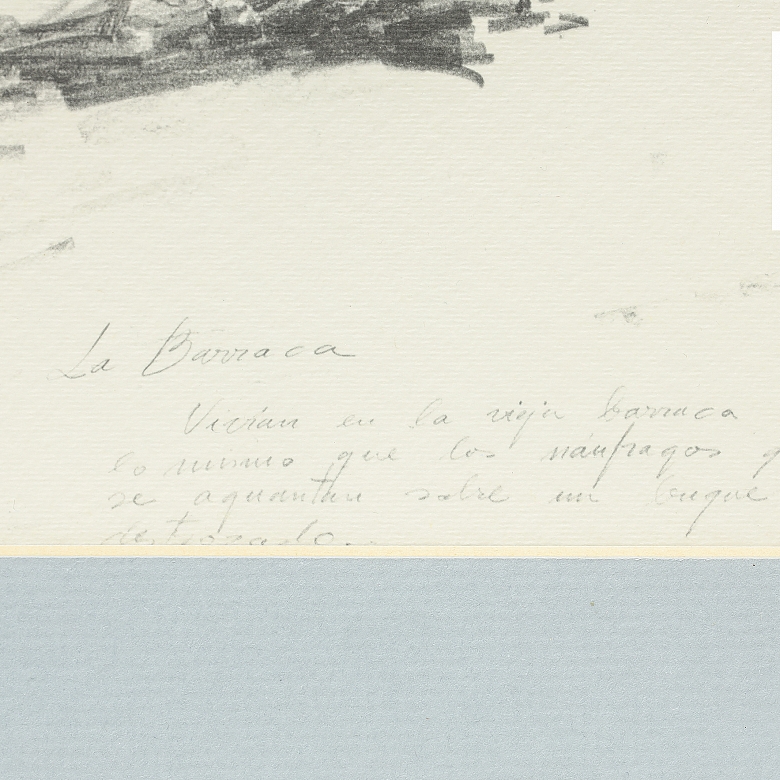 La Barraca
Vivían en la vieja barraca
lo mismo que los náufragos q
se aguantan sobre un buque
destrozado.